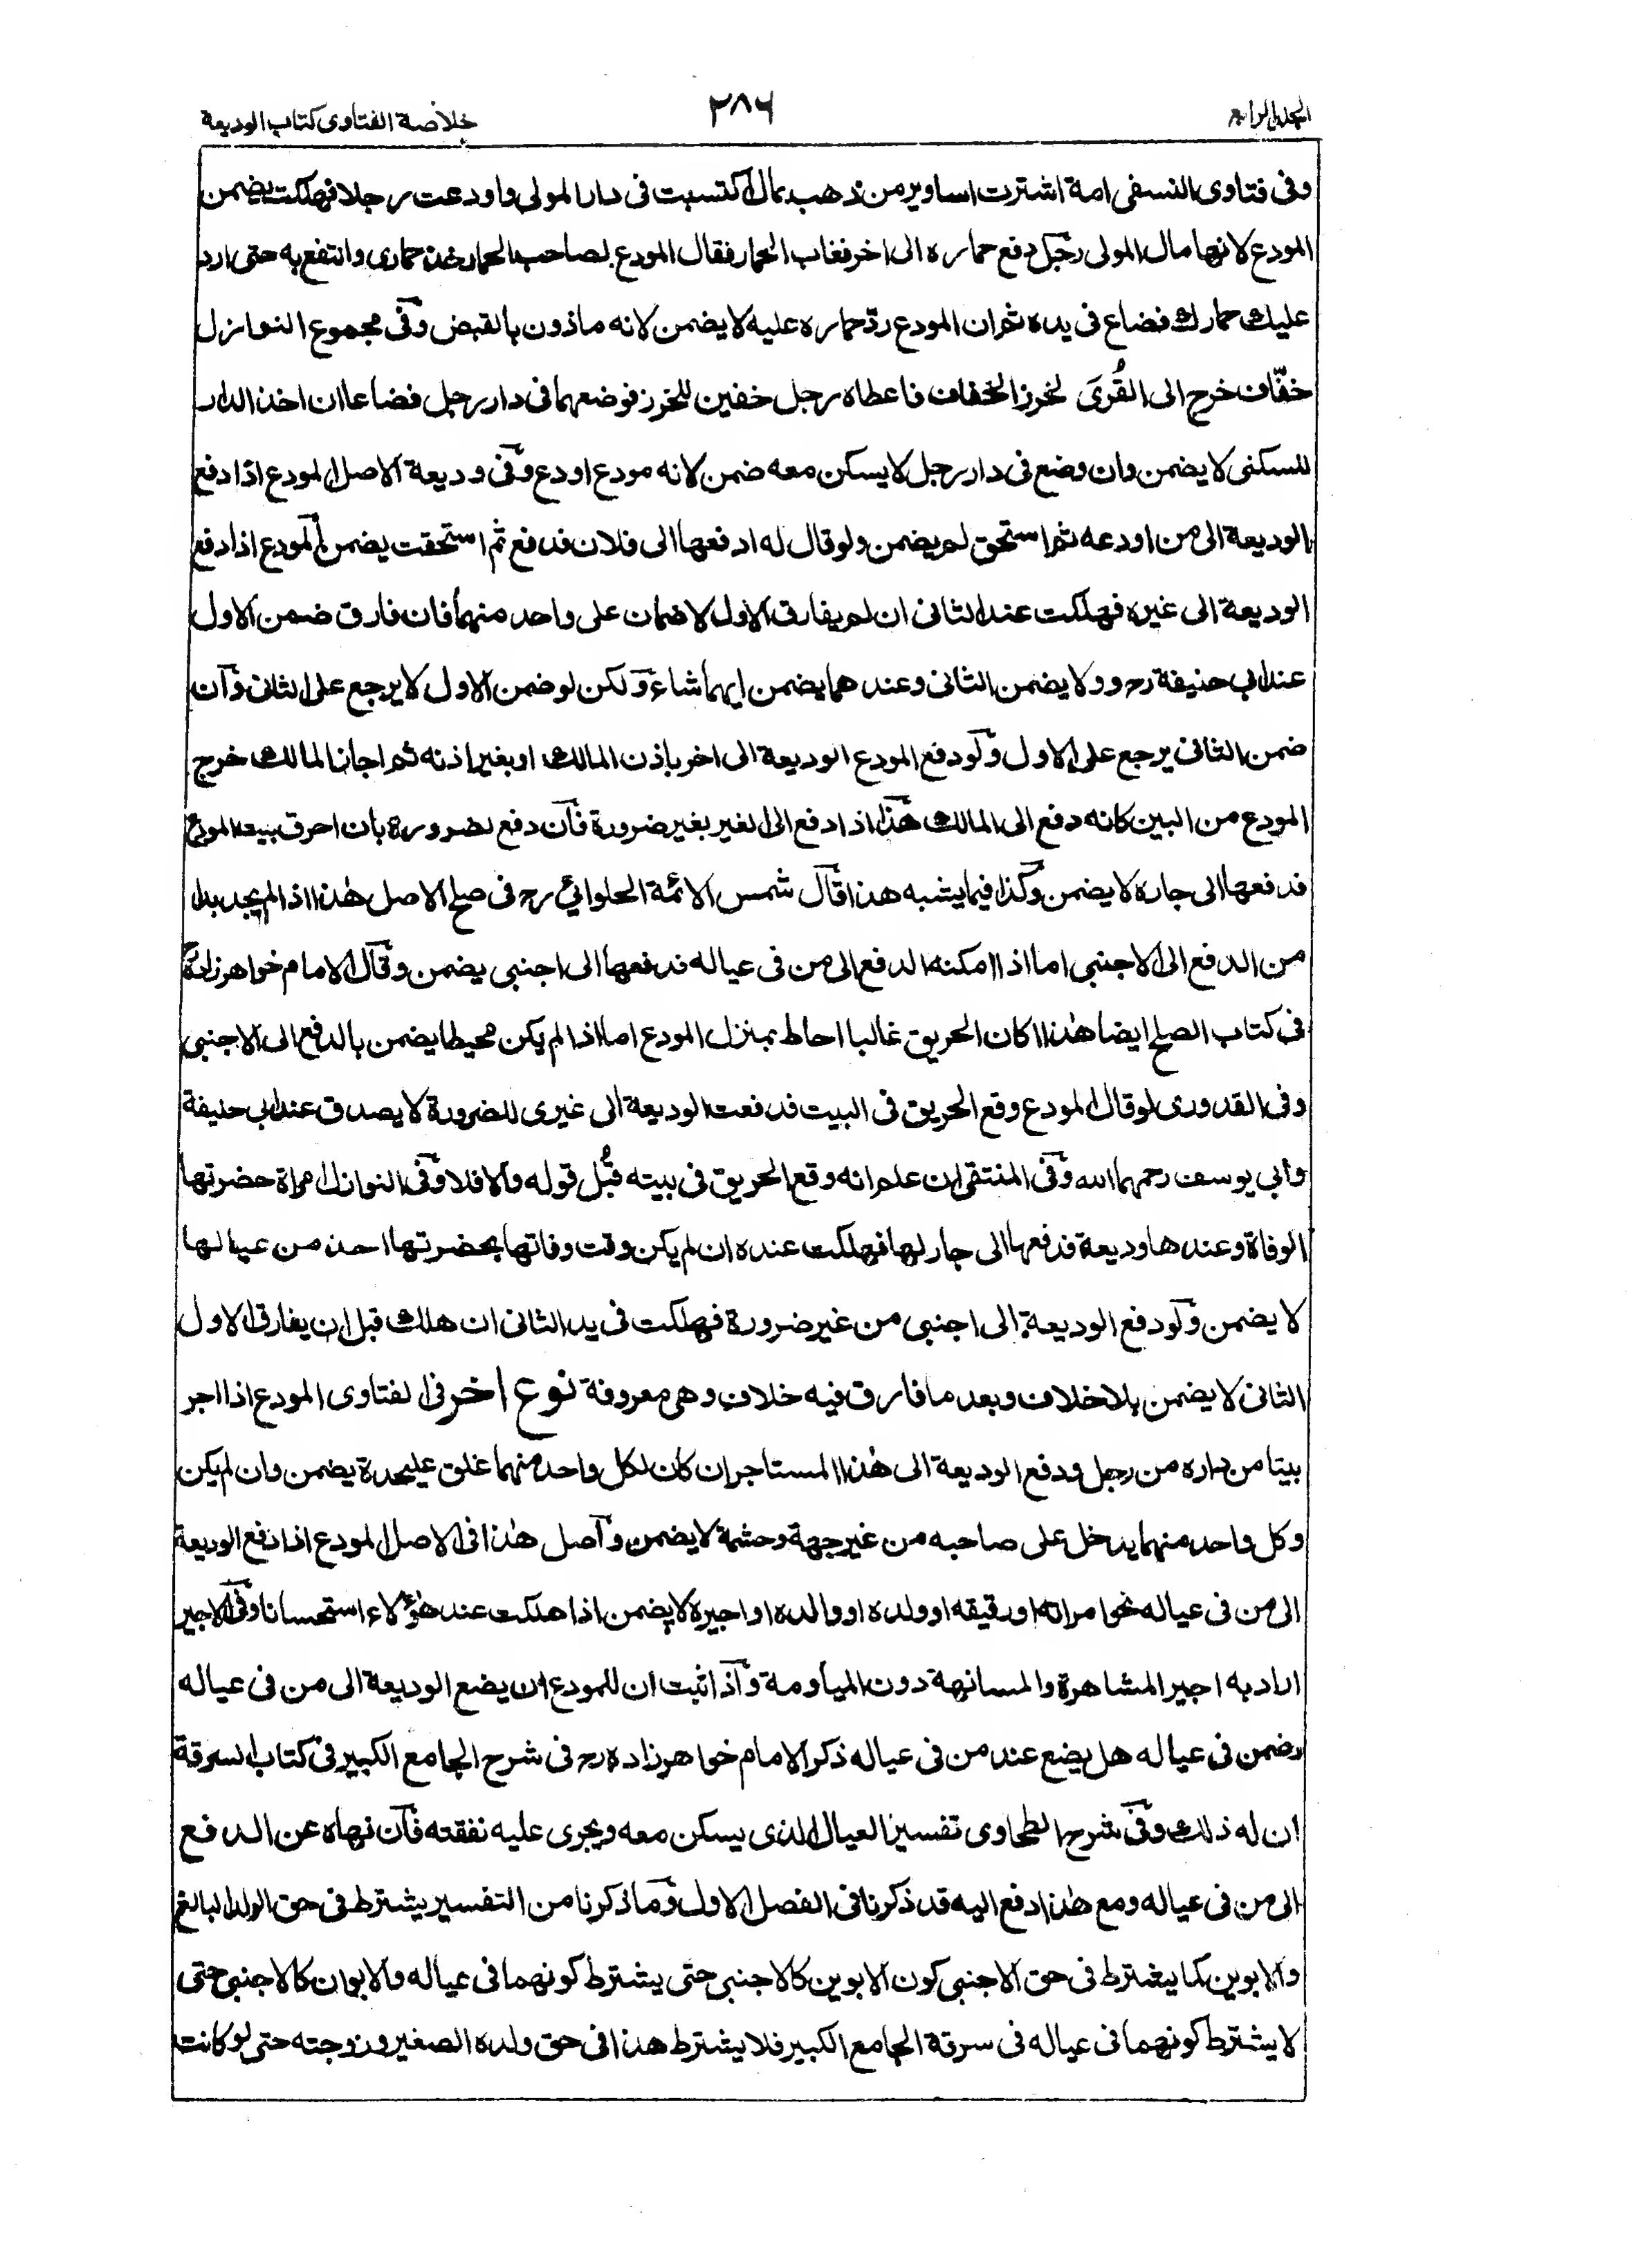 المجلد الرابع
٢٨٦
خلاصة الفتاوى كتاب الوديعة
وفى فتاوى النسفى امة اشترت اساوير من ذهب بمال اكتسبت فى دار المولى واودعت رجلا فهلكت يضمن
المودع لانها مال المولى رجل دفع حماره الى اخر فغاب الحمار فقال المودع لصاحب الحمار خذ حمارى وانتفع به حتى ارد
عليك حمارك فضاع فى يده ثم ان المودع ردّ حماره عليه لا يضمن لانه ماذون بالقبض وفى مجموع النوازل
خفّاف خرج الى القُرىَ لخرز الخفاف فاعطاه رجل خفين للخرز فوضعهما فى دار رجل فضاعا ان اخذ الدار
للسكنى لا يضمن وان وضع فى دار رجل لا يسكن معه ضمن لانه مودع اودع وفى وديعة الاصل المودع اذا دفع
الوديعة الى من اودعه ثم استحق لم يضمن ولو قال له ادفعها الى فلان فدفع ثم استحقت يضمن المودع اذا دفع
الوديعة الى غيره فهلكت عند الثانى ان لم يفارق الاول لا ضمان على واحد منهما فان فارق ضمن الاول
عند ابى حنيفة رح وولا يضمن الثانى وعندهما يضمن ايهما شاء ولكن لو ضمن الاول لا يرجع على الثانى وان
ضمن الثانى يرجع على الاول ولو دفع المودع الوديعة الى اخر باذن المالك او بغير اذنه ثم اجاز المالك خرج
المودع من البين كانه دفع الى المالك هذا اذا دفع الى الغير بغير ضرورة فان دفع لضرورة بان احرق بيت المودع
فدفعها الى جاره لا يضمن وكذا فيما يشبه هذا قال شمس الائمة الحلوائي رح فى صلح الاصل هذا اذا لم يجد بدا
من الدفع الى الاجنبى اما اذا امكنه الدفع الى من فى عياله فدفعها الى اجنبى يضمن وقال الامام خواهرزاده
فى كتاب الصلح ايضا هذا اكان الحريق غالبا احاط بمنزل المودع اما اذا لم يكن محيطا يضمن بالدفع الى الاجنبى
وفى القدورى لو قال المودع وقع الحريق فى البيت فدفعت الوديعة الى غيرى للضرورة لا يصدق عند ابى حنيفة
وابى يوسف رحمهما الله وفى المنتقى ان علم انه وقع الحريق فى بيته قُبل قوله والا فلا وفى النوازل امراة حضرتها
الوفاة وعندها وديعة فدفعها الى جار لها فهلكت عنده ان لم يكن وقت وفاتها بحضرتها احد من عيالها
لا يضمن ولو دفع الوديعة الى اجنبى من غير ضرورة فهلكت فى يد الثانى ان هلك قبل ان يفارق الاول
الثانى لا يضمن بلا خلاف وبعد ما فارق فيه خلاف وهى معروفة نوع اخر فى الفتاوى المودع اذا اجر
بيتا من داره من رجل ودفع الوديعة الى هذا المستاجر ان كان لكل واحد منهما غلق عليحدة يضمن وان لم يكن
وكل واحد منهما يدخل على صاحبه من غير جهة وحشمة لا يضمن واصل هذا فى الاصل المودع اذا دفع الوديعة
الى من فى عياله نحو امراته او رقيقه او ولده او والده او اجيره لا يضمن اذا هلكت عند هؤلاء استحسانا وفى الاجير
اراد به اجير المشاهرة والمسانهة دون المياومة واذا ثبت ان للمودع ان يضع الوديعة الى من فى عياله
فمن فى عياله هل يضع عند من فى عياله ذكر الامام خواهرزاده رح فى شرح الجامع الكبير فى كتاب السرقة
ان له ذلك وفى شرح الطحاوى تفسير العيال الذى يسكن معه ويجرى عليه نفقته فان نهاه عن الدفع
الى من فى عياله ومع هذا دفع اليه قد ذكرنا فى الفصل الاول وما ذكرنا من التفسير يشترط فى حق الولد البالغ
والابوين كما يشترط فى حق الاجنبى كون الابوين كالاجنبى حتى يشترط كونهما فى عياله والابوان كالاجنبى حتى
لا يشترط كونهما فى عياله فى سرقة الجامع الكبير فلا يشترط هذا فى حق ولده الصغير وزوجته حتى لو كانت